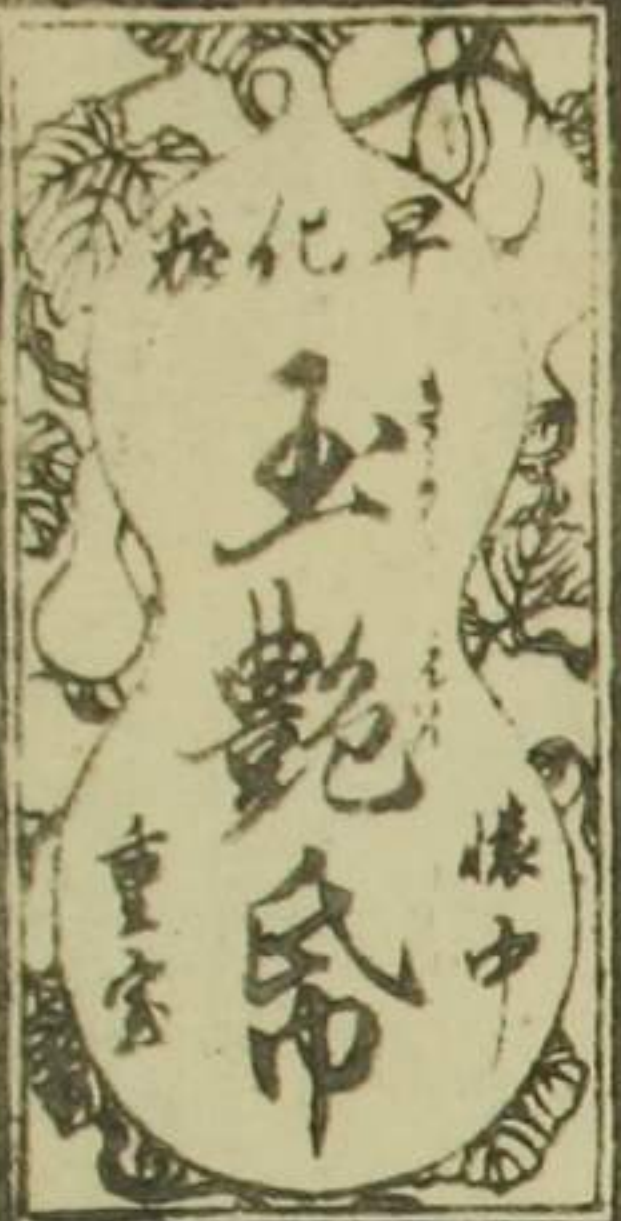 早化粧
玉艶帋
懐中
重宝